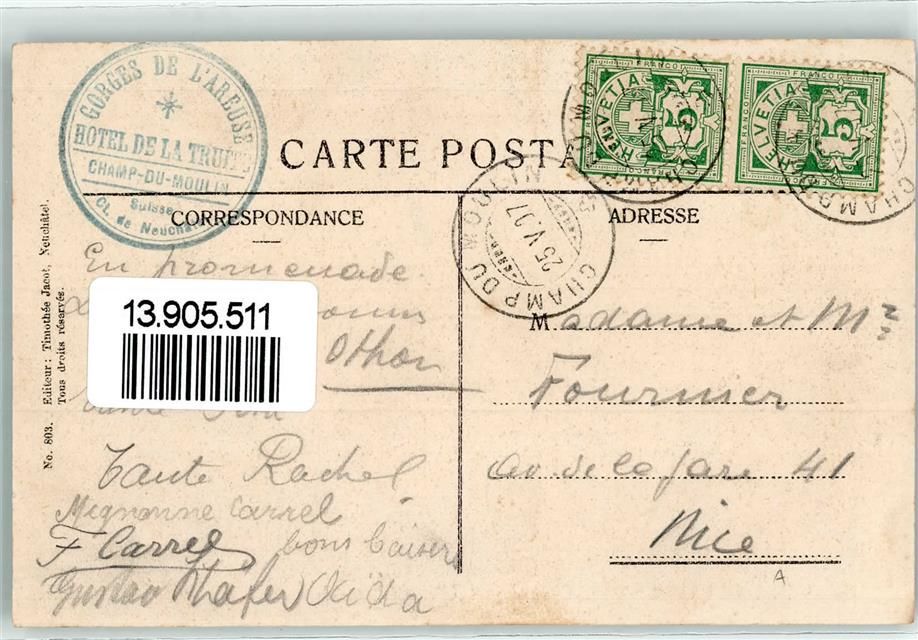 GORGES DE L'AREUSE
HOTEL DE LA TRUITE
CHAMP-DU-MOULIN
Suisse
Ct. de Neuchâtel
CARTE POSTALE
FRANCO
HELVETIA
5
FRANCO
FRANCO
HELVETIA
5
FRANCO
CHAMP DU MOULIN
25 V 07
CORRESPONDANCE
ADRESSE
En promenade
13.905.511
Othon
Tante Rachel
Mignonne Carrel
F Carrel bons baisers
Gustav
Madame et Mr
Fournier
Av. de la gare 41
Nice
A
No. 803. Editeur: Timothée Jacot, Neuchâtel.
Tous droits réservés.